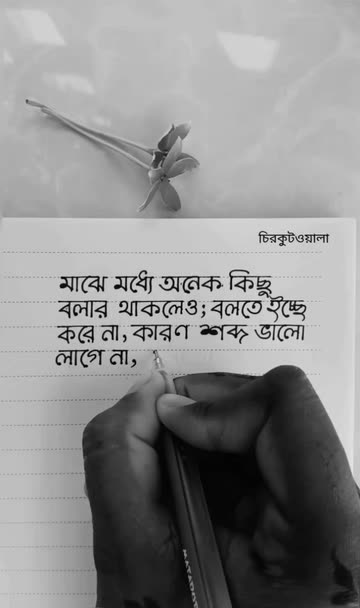 চিরকুটওয়ালা
মাঝে মধ্যে অনেক কিছু
বলার থাকলেও; বলতে ইচ্ছে
করে না, কারণ শব্দ ভালো
লাগে না,
MATADOR